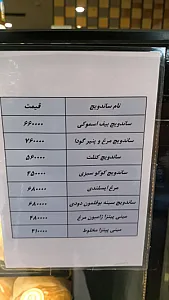 نام ساندویچ قیمت
ساندویچ بیف اسموکی ۶۶۰۰۰۰
ساندویچ مرغ و پنیر گودا ۷۶۰۰۰۰
ساندویچ کتلت ۵۶۰۰۰۰
ساندویچ کوکو سبزی ۴۵۰۰۰۰
مرغ ایسلندی ۶۸۰۰۰۰
ساندویچ سینه بوقلمون دودی ۶۸۰۰۰۰
مینی پیتزا ژامبون مرغ ۲۸۰۰۰۰
مینی پیتزا مخلوط ۳۱۰۰۰۰